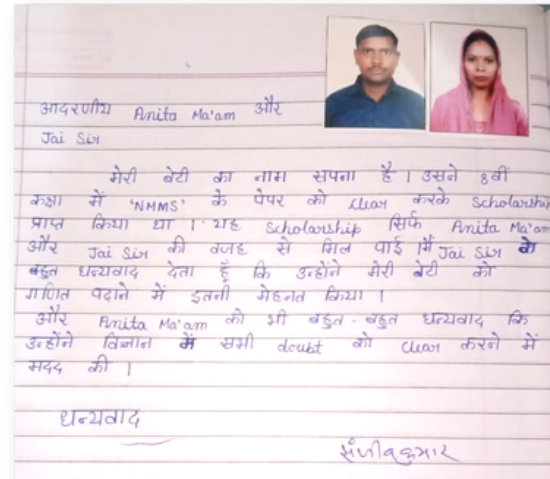 आदरणीय Anita Ma'am और
Jai Sir
मेरी बेटी का नाम सपना है । उसने 8वीं
कक्षा में 'NMMS' के पेपर को clear करके Scholarship
प्राप्त किया था । यह Scholarship सिर्फ Anita Ma'am
और Jai Sir की वजह से मिल पाई । मैं Jai Sir के
बहुत धन्यवाद देता हूँ कि उन्होंने मेरी बेटी को
गणित पढाने में इतनी मेहनत किया ।
और Anita Ma'am को भी बहुत - बहुत धन्यवाद कि
उन्होंने विज्ञान में सभी doubt को clear करने में
मदद की ।
धन्यवाद
संजीव कुमार